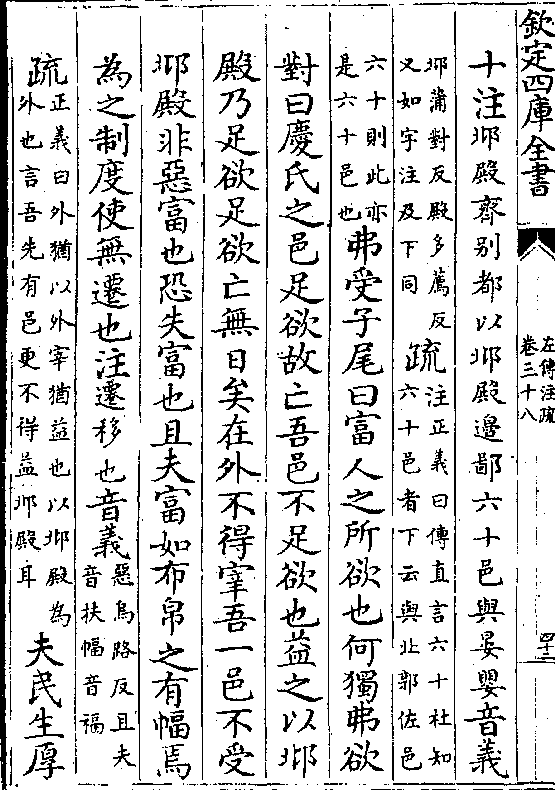 欽定四庫全書
左傳注疏
卷三十八
十注邶殿齊别都以邶殿邊鄙六十邑與晏嬰音義
邶蒲對反殿多薦反
又如字注及下同
疏
注正義曰傳直言六十社知
六十邑者下云與北郭佐邑
六十則此亦
是六十邑也
弗受子尾曰富人之所欲也何獨弗欲
對曰慶氏之邑足欲故亡吾邑不足欲也益之以邶
殿乃足欲足欲亡無日矣在外不得宰吾一邑不受
邶殿非惡富也恐失富也且夫富如布帛之有幅焉
為之制度使無遷也注遷移也音義
惡烏路反且夫
音扶幅音福
疏
正義曰外猶以外宰猶益也以邶殿為
外也言吾先有邑更不得益邶殿耳
夫民生厚